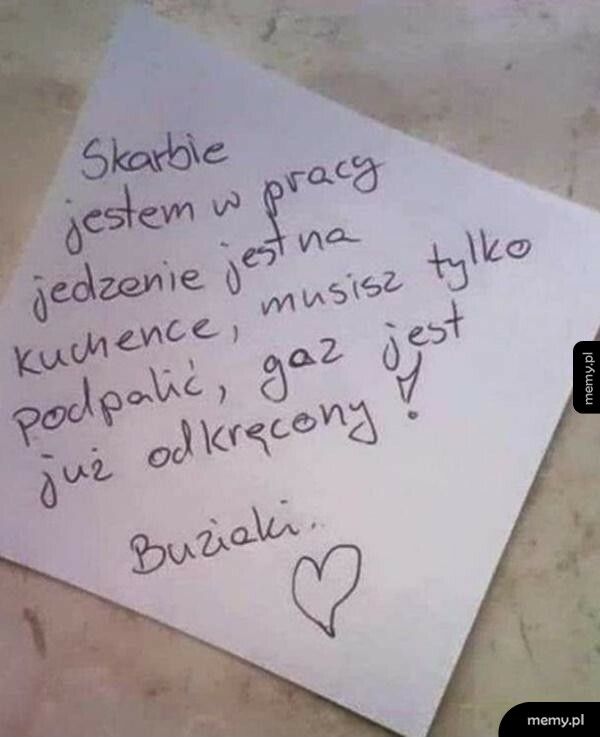 Skarbie
jestem w pracy
jedzenie jest na
kuchence, musisz tylko
podpalić, gaz jest
już odkręcony!
Buziaki..
memy.pl
memy.pl